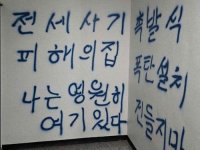 전세사기
피해의집
나는 영원히
여기 있다
흑발식
폭탄설치
건들지마